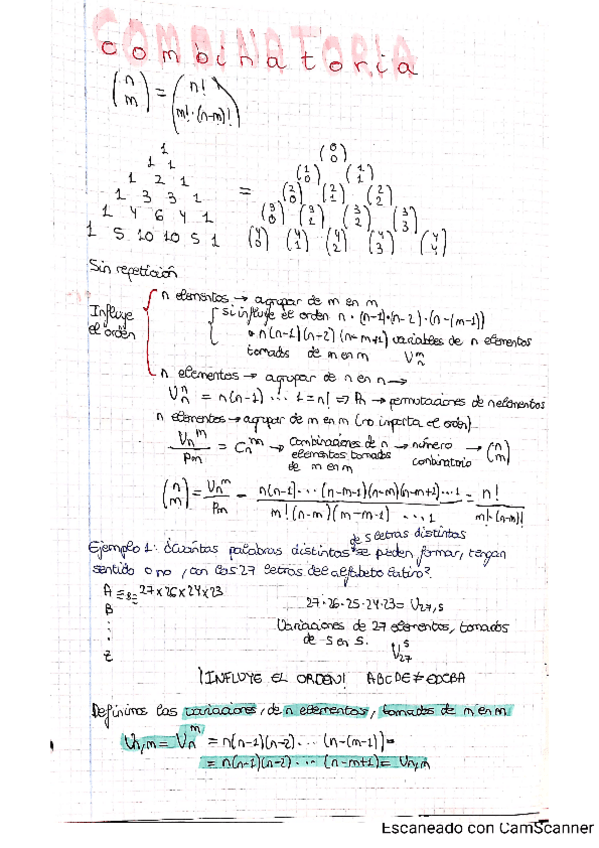 COMBINATORIA
combinatoria
(n m) = (n! m!·(n-m)!)
1
1 1
1 2 1
1 3 3 1
1 4 6 4 1
1 5 10 10 5 1
=
(0 0)
(1 0) (1 1)
(2 0) (2 1) (2 2)
(3 0) (3 1) (3 2) (3 3)
(4 0) (4 1) (4 2) (4 3) (4 4)
Sin repetición
Influye el orden
n elementos → agrupar de m en m
si influye el orden n·(n-1)·(n-2)·(n-(m-1))
n(n-1)(n-2)(n-m+1) variables de n elementos
tomados de m en m Vₙᵐ
n elementos → agrupar de n en n →
Vₙⁿ = n(n-1) ... 1 = n! ⇒ Pₙ → permutaciones de n elementos
n elementos → agrupar de m en m (no importa el orden)
Vₙᵐ/Pm = Cₙᵐ → combinaciones de n elementos tomados de m en m → número combinatorio → (n m)
(n m) = Vₙᵐ/Pm = n(n-1)·...(n-m-1)(n-m)(n-m+1)...1 / m!(n-m)(m-m-1) ...1 = n!/m!·(n-m)!
de 5 letras distintas
Ejemplo 1: ¿Cuántas palabras distintas se pueden formar, tengan
sentido o no, con las 27 letras del alfabeto latino?
A 27×26×24×23
B
z
27·26·25·24·23 = V27,5
Variaciones de 27 elementos, tomados
de 5 en 5. V₂₇⁵
¡INFLUYE EL ORDEN! ABCDE ≠ EDCBA
Definimos las variaciones, de n elementos, tomados de m en m
Vn,m = Vₙᵐ = n(n-1)(n-2)·...(n-(m-1)) =
= n(n-1)(n-2)·...(n-m+1) = Vn,m
Escaneado con CamScanner